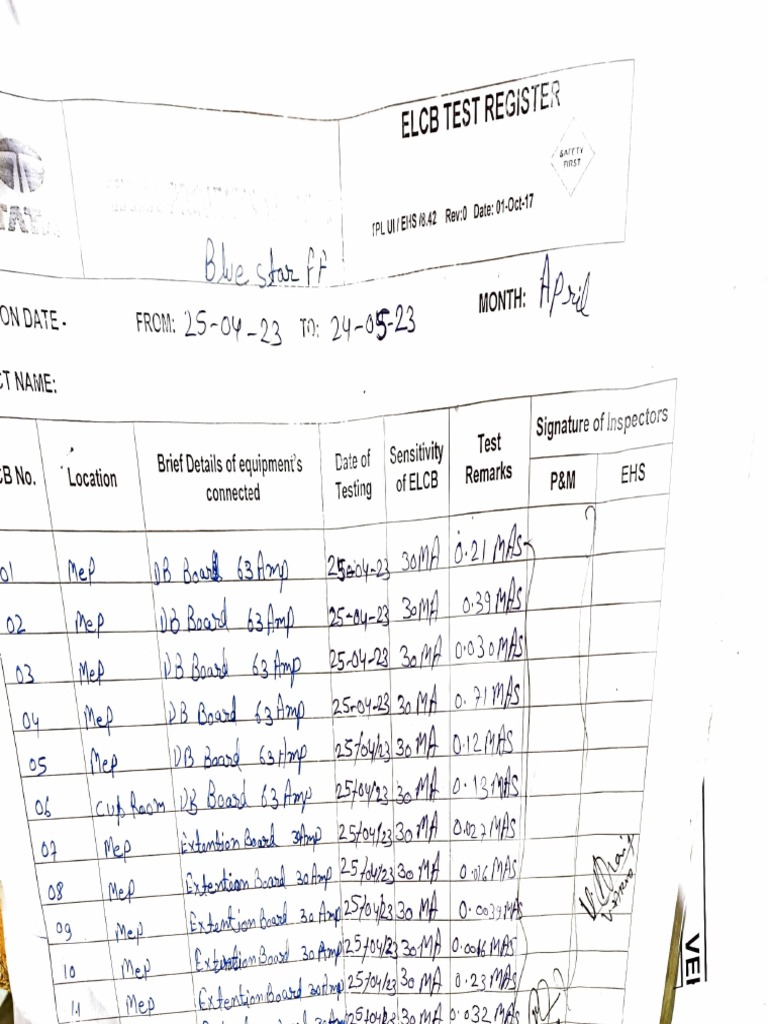 ELCB TEST REGISTER
SAFETY FIRST
TATA
TPL UI / EHS /8.42 Rev:0 Date: 01-Oct-17
Blue star ff
ON DATE - FROM: 25-04-23 TO: 24-05-23 MONTH: April
CT NAME:
CB No. Location Brief Details of equipment's connected Date of Testing Sensitivity of ELCB Test Remarks Signature of Inspectors
P&M EHS
01 Mep DB Board 63 Amp 25-04-23 30MA 0.21 MAs
02 Mep DB Board 63 Amp 25-04-23 30MA 0.39 MAs
03 Mep DB Board 63 Amp 25-04-23 30MA 0.030 MAs
04 Mep DB Board 63 Amp 25-04-23 30MA 0.71 MAs
05 Mep DB Board 63 Amp 25/04/23 30MA 0.12 MAS
06 Room DB Board 63 Amp 25/04/23 30MA 0.13 MAS
07 Mep Extention Board Amp 25/04/23 30MA 0.027 MAS
08 Mep Extention Board 30 Amp 25/04/23 30MA MAS
09 Mep Extention Board 30 Amp 25/04/23 30MA MAS
10 Mep Extention Board 30 Amp 25/04/23 30MA MAS
11 Mep Extention Board 30 Amp 25/04/23 30MA 0.23 MAS
25/04/23 30MA 0.032 MAS
VEI